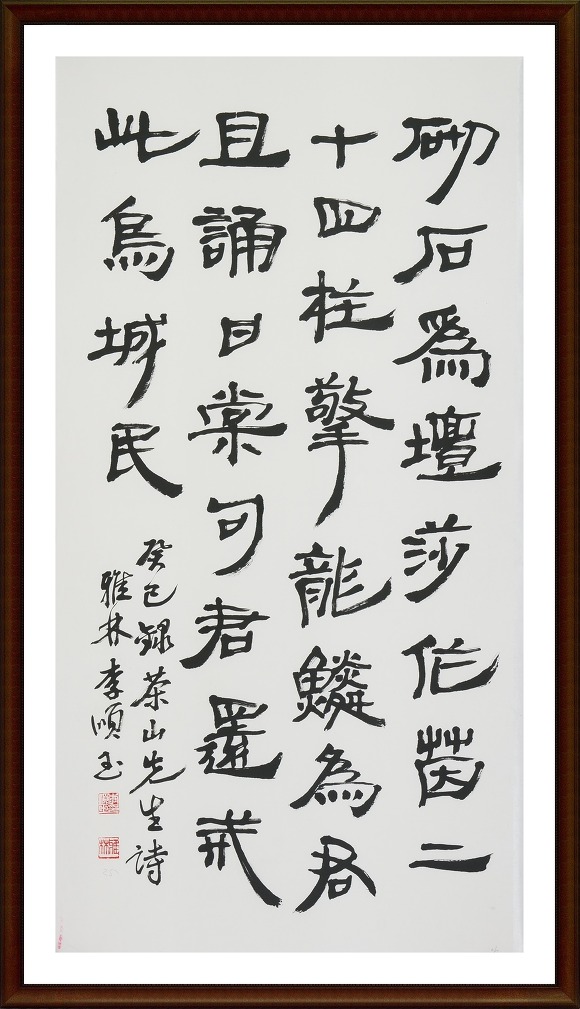 砌石爲壇莎作茵二
十四柱擎龍鱗為君
且誦甘棠句君還戒
此烏城民
癸巳錄茶山先生詩
雅林李順玉